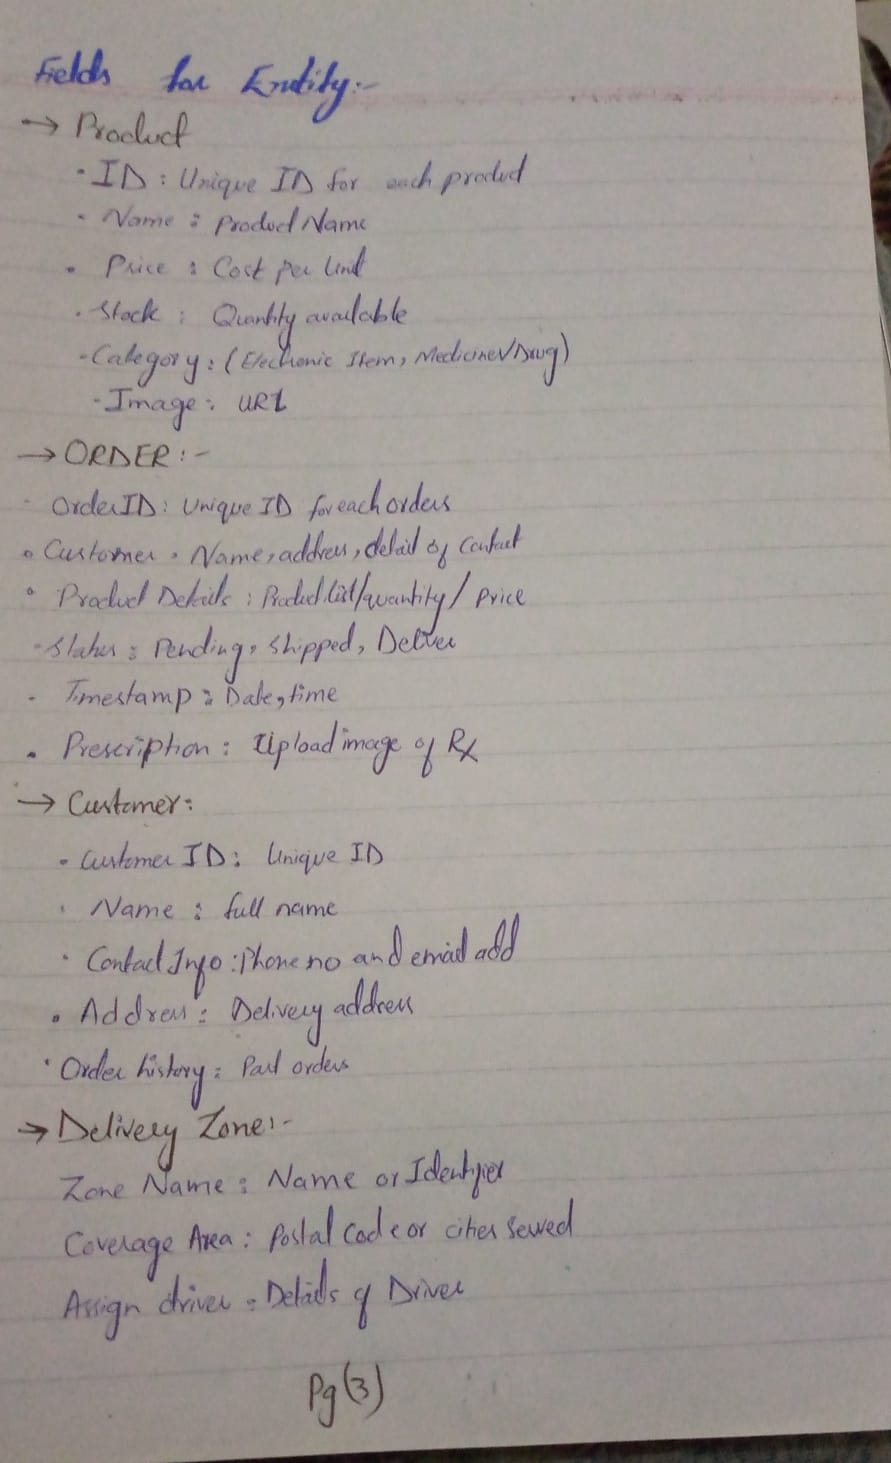 Fields for Entity:-
→ Product
· ID : Unique ID for each product
· Name : Product Name
· Price : Cost per Unit
· Stock : Quantity available
- Category : (Electronic Item, Medicine/Drug)
- Image : URL
→ ORDER :-
- Order ID : Unique ID for each orders
· Customer : Name, address, detail of Contact
· Product Details : Product list/quantity/ Price
- Status : Pending, Shipped, Deliver
- Timestamp : Date, time
· Prescription : Upload image of Rx
→ Customer :
· Customer ID : Unique ID
· Name : full name
· Contact Info : Phone no and email add
· Address : Delivery address
· Order history : Past orders
→ Delivery Zone :-
Zone Name : Name or Identifier
Coverage Area : Postal Code or cities Served
Assign driver : Details of Driver
Pg (3)